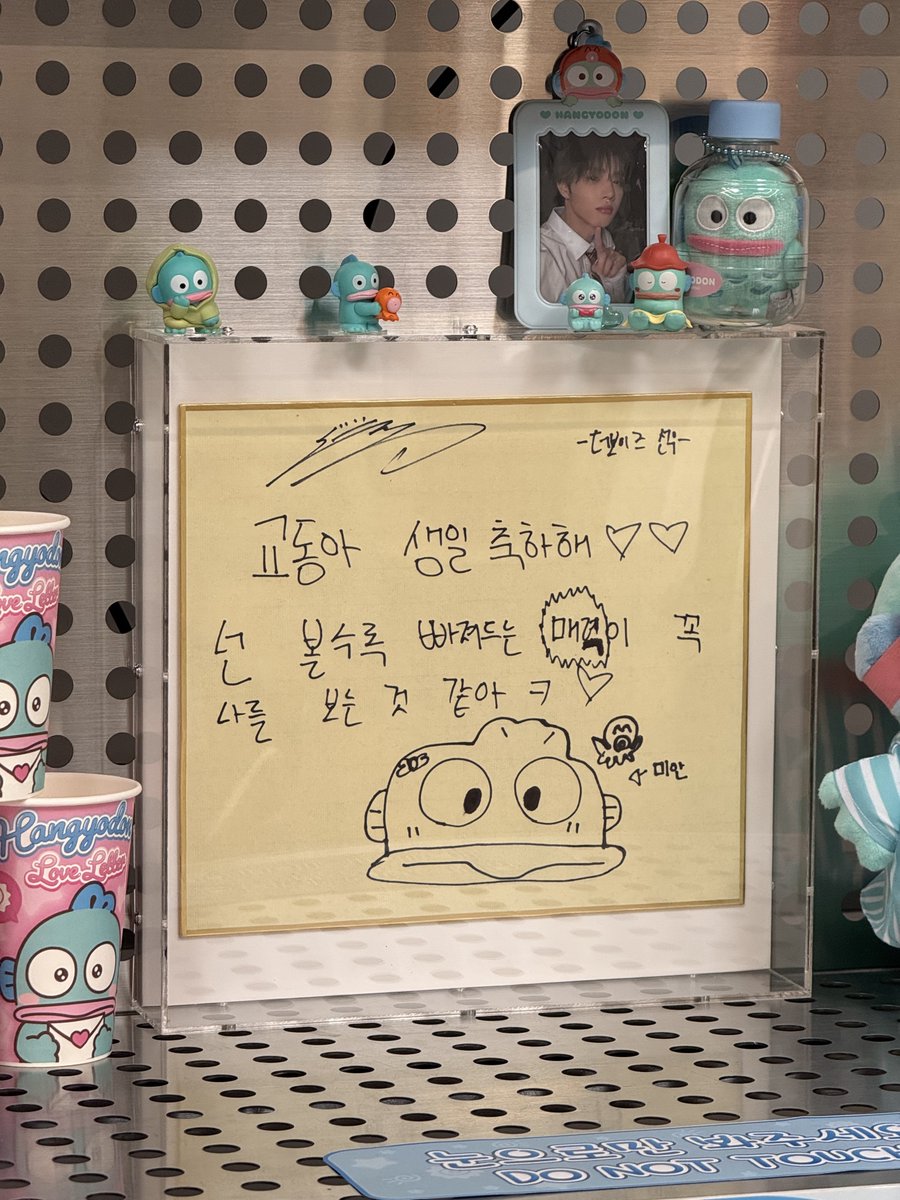 HANGYODON
-더보이즈 선우-
교동아 생일 축하해 ♡♡
넌 볼수록 빠져드는 매력이 꼭
나를 보는 것 같아 ㅋ ♡
미안
Hangyodon
Love Letter
Hangyodon
Love Letter
눈으로만 봐주세
DO NOT TOUCH